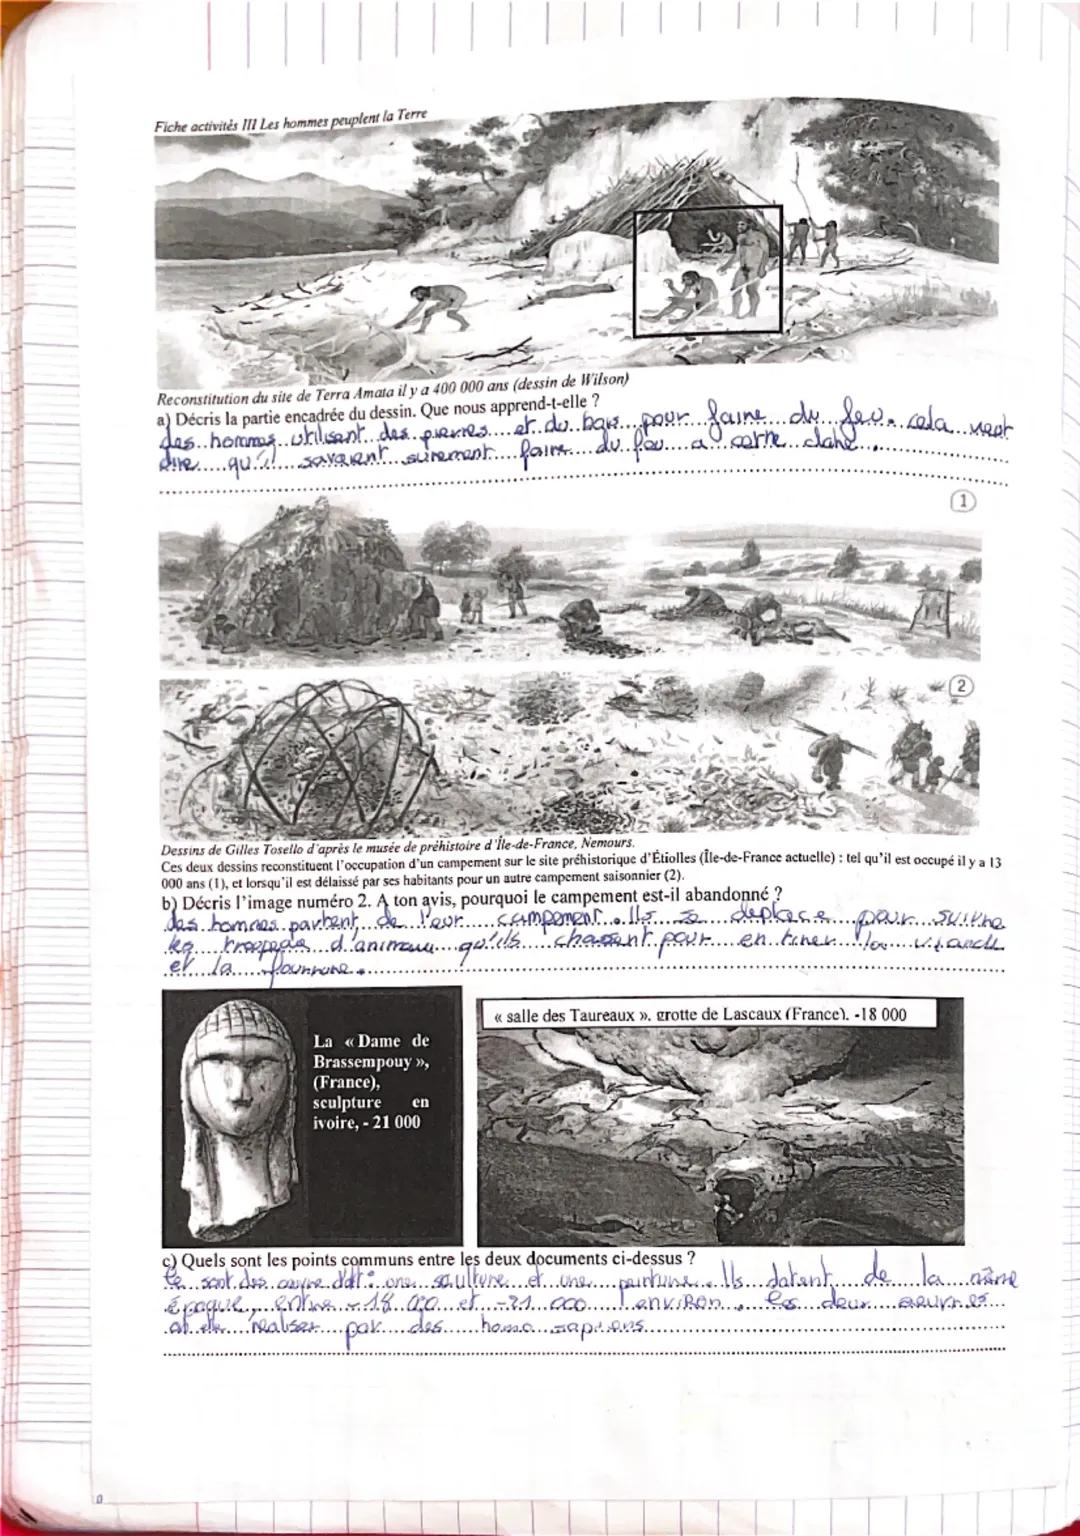 Fiche activités III Les hommes peuplent la Terre
Reconstitution du site de Terra Amata il y a 400 000 ans (dessin de Wilson)
a) Décris la partie encadrée du dessin. Que nous apprend-t-elle ?
des hommes utilisent des pierres et du bois pour faire du feu. cela veut
dire qu'il savaient surement faire du feu a cette date.
1
2
Dessins de Gilles Tosello d'après le musée de préhistoire d'Île-de-France, Nemours.
Ces deux dessins reconstituent l'occupation d'un campement sur le site préhistorique d'Étiolles (Île-de-France actuelle) : tel qu'il est occupé il y a 13
000 ans (1), et lorsqu'il est délaissé par ses habitants pour un autre campement saisonnier (2).
b) Décris l'image numéro 2. A ton avis, pourquoi le campement est-il abandonné ?
des hommes partent de leur campement. Ils se deplace pour suivre
les d'animaux qu'ils chassent pour en tirer la viande
et la fourrure.
La « Dame de
Brassempouy »,
(France),
sculpture en
ivoire, - 21 000
« salle des Taureaux », grotte de Lascaux (France), -18 000
c) Quels sont les points communs entre les deux documents ci-dessus ?
Ce sont des d'art : une sculture et une peinture. Ils datent de la même
époque, entre -18 000 et -21 000 environ. Les deux œuvres
réaliser par des homo sapiens.